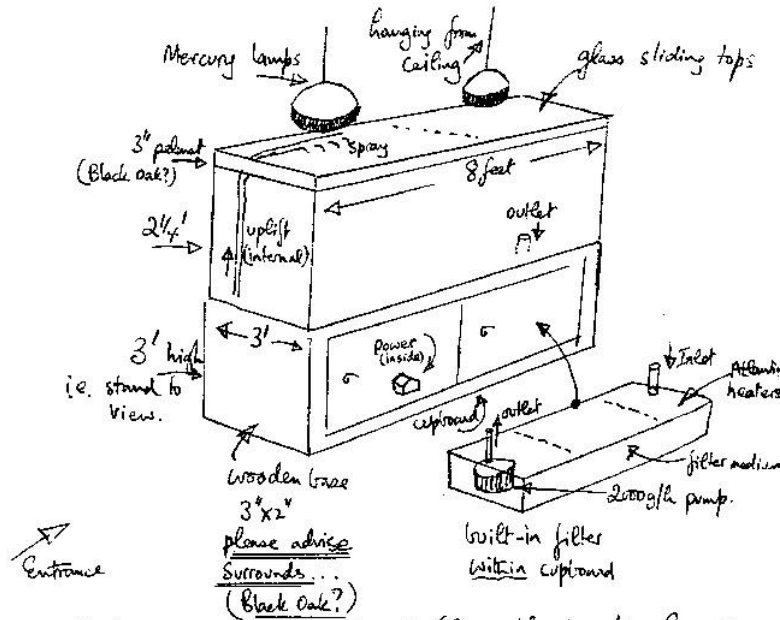 Mercury lamps
hanging from
ceiling
glass sliding tops
3" pelmet
(Black Oak?)
spray
8 feet
2¼'
uplift
(internal)
outlet
3' high
i.e. stand to
view.
3'
power
(inside)
cupboard
outlet
Inlet
heaters
filter medium
2000g/h pump.
wooden base
3"x2"
please advise
Surrounds...
(Black Oak?)
built-in filter
within cupboard
Entrance